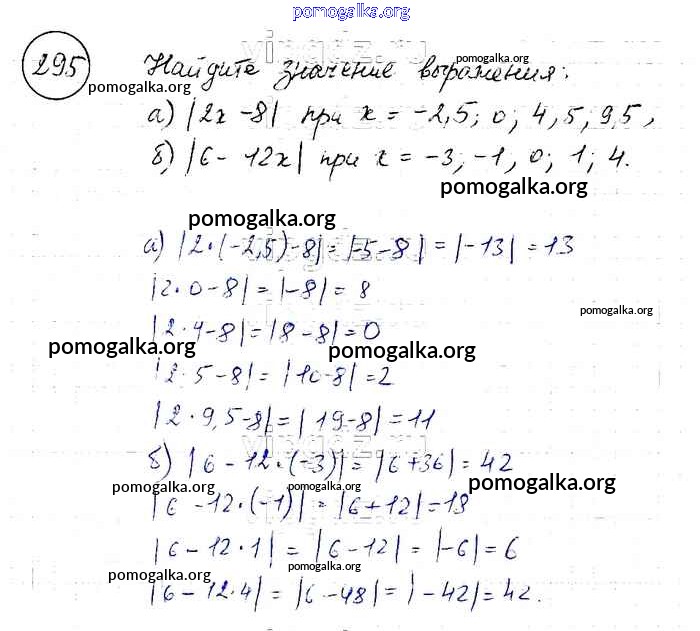 pomogalka.org
295 Найдите значение выражения:
pomogalka.org pomogalka.org
а) |2x -8| при x = -2,5; 0; 4, 5; 9,5,
б) |6 - 12x| при x = -3; -1, 0; 1; 4.
pomogalka.org
pomogalka.org
а) |2·(-2,5)-8| = |-5-8| = |-13| = 13
|2·0-8| = |-8| = 8
pomogalka.org
|2·4-8| = |8-8| = 0
pomogalka.org pomogalka.org
|2·5-8| = |10-8| = 2
|2·9,5-8| = |19-8| = 11
б) |6 - 12·(-3)| = |6+36| = 42
pomogalka.org pomogalka.org pomogalka.org
|6 -12·(-1)| = |6+12| = 18
|6-12·1| = |6-12| = |-6| = 6
pomogalka.org pomogalka.org
|6-12·4| = |6-48| = |-42| = 42.